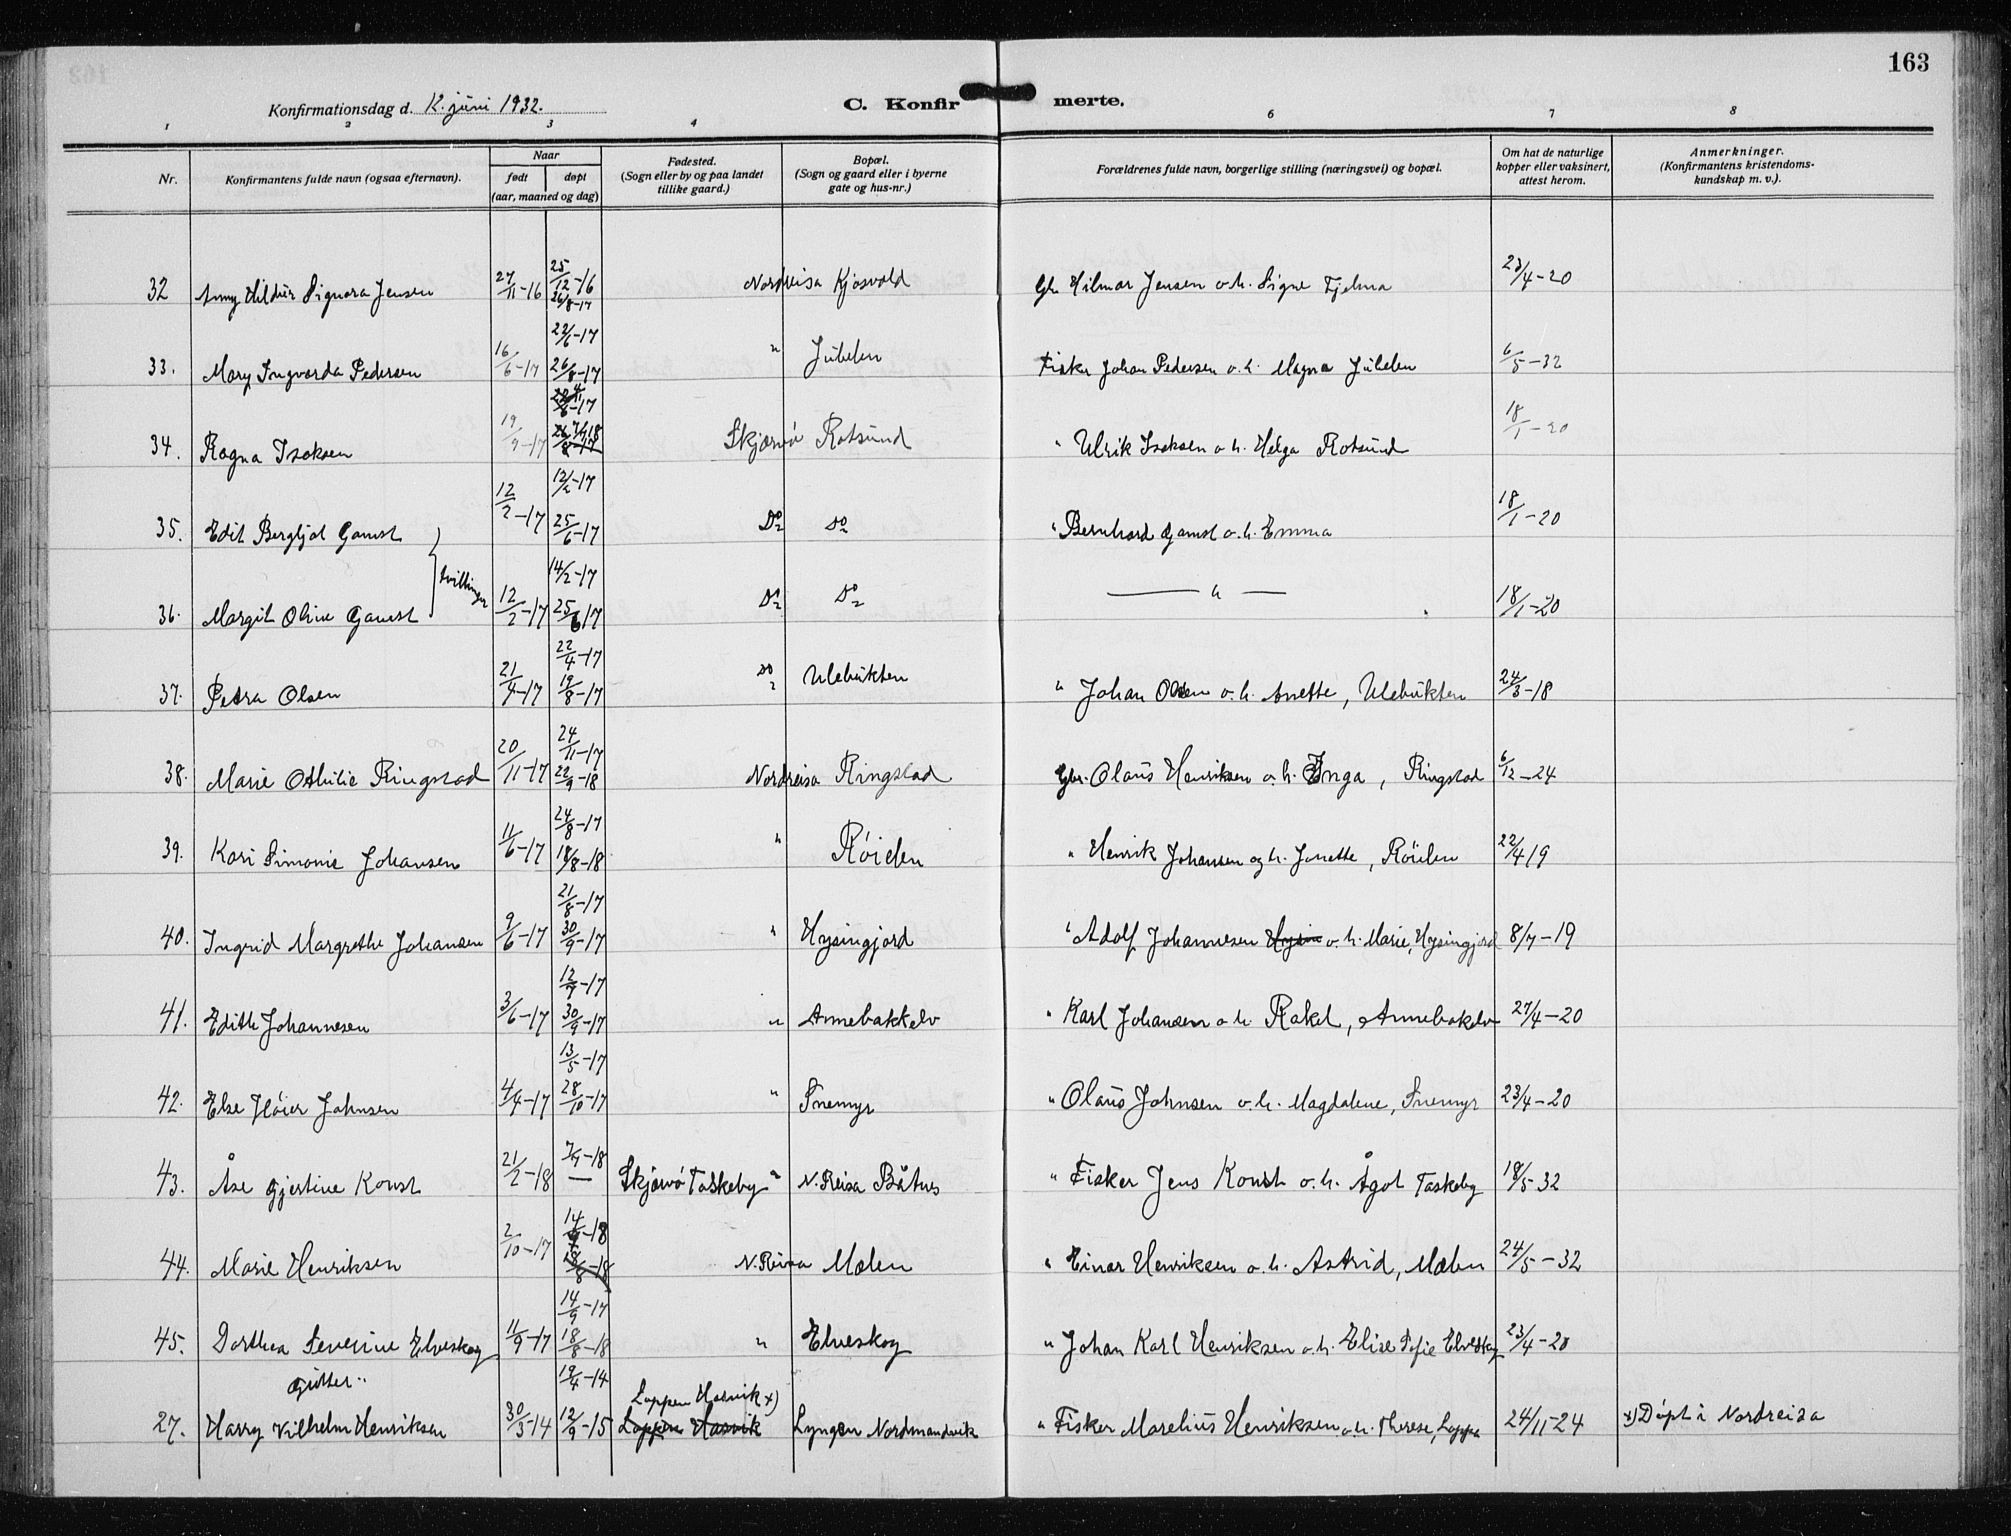 163
Konfirmationsdag d. 12. juni 1932.
C. Konfirmerte.
1 2 3 4 6 7 8
Nr.
Konfirmantens fulde navn (ogsaa efternavn).
Naar
født
døpt
(aar, maaned og dag)
Fødested.
(Sogn eller by og paa landet
tillike gaard.)
Bopæl.
(Sogn og gaard eller i byerne
gate og hus-nr.)
Forældrenes fulde navn, borgerlige stilling (næringsvei) og bopæl.
Om hat de naturlige
kopper eller vaksinert,
attest herom.
Anmerkninger.
(Konfirmantens kristendoms-
kundskap m. v.).
25/12-16
32 Signora Jensen 27/11-16 26/8-17 Nordreisa Kjosvold Gbr Hilmar Jensen o.h. Signe 23/4-20
22/6-17
33. Mary Ingvarda Pedersen 16/6-17 26/8-17 " Jubelen Fisker Johan Pedersen o.h. Magna Jubelen 6/5-32
34. Ragna Isaksen 19/9-17 Skjærvø Rotsund " Ulrik Isaksen o.h. Helga Rotsund 18/1-20
12/2-17
35. Edit Bergljot Gamst 12/2-17 25/6-17 Do Do " Bernhard Gamst o.h. Emma 18/1-20
tvillinger
14/2-17
36. Margit Oline Gamst 12/2-17 25/6 17 Do Do — " — 18/1-20
22/4-17
37. Petra Olsen 21/4-17 19/8-17 Do Ulebukten " Johan Olsen o.h. Anette, Ulebukten 24/3-18
24/11-17
38. Marie Othilie Ringstad 20/11-17 22/9-18 Nordreisa Ringstad Gbr. Olaus Henriksen o.h. Inga, Ringstad 6/12-24
24/8-17
39. Kari Simonie Johansen 11/6-17 18/8-18 " Røielen " Henrik Johansen og h. Jonette, Røielen 22/4 19
21/8-17
40. Ingrid Margrethe Johansen 9/6-17 30/9-17 " Hysingjord " Adolf Johannesen o.h. Marie, Hysingjord 8/7-19
12/7-17
41. Edith Johannesen 3/6-17 30/9-17 " Annebakkelv " Karl Johansen o.h. Rakel, Annebakelv 27/4-20
13/5-17
42. Else Høier Johnsen 4/4-17 28/10-17 " Snemyr " Olaus Johnsen o.h. Magdalene, Snemyr 23/4-20
7/4-18
43. Åse Gjertine Konst 21/2-18 — Skjærvø Taskeby N. Reisa Båtnes " Fisker Jens Konst o.h. Ågot Taskeby 18/5-32
44. Marie Henriksen 2/10-17 N. Reisa Mælen " Einar Henriksen o.h. Astrid, Mælen 24/5-32
14/9-17
45. Dorthea Severine Elveskog 11/9-17 18/8-18 " Elveskog " Johan Karl Henriksen o.h. Elise Sofie Elveskog 23/4-20
Gutter.
19/4-14
Loppen Hasvik x)
27. Harry Vilhelm Henriksen 30/3-14 12/9-15 Loppen Hasvik Lyngen Nordmandvik " Fisker Marelius Henriksen o.h. Therese, Loppa 24/11-24 x) Døpt i Nordreisa